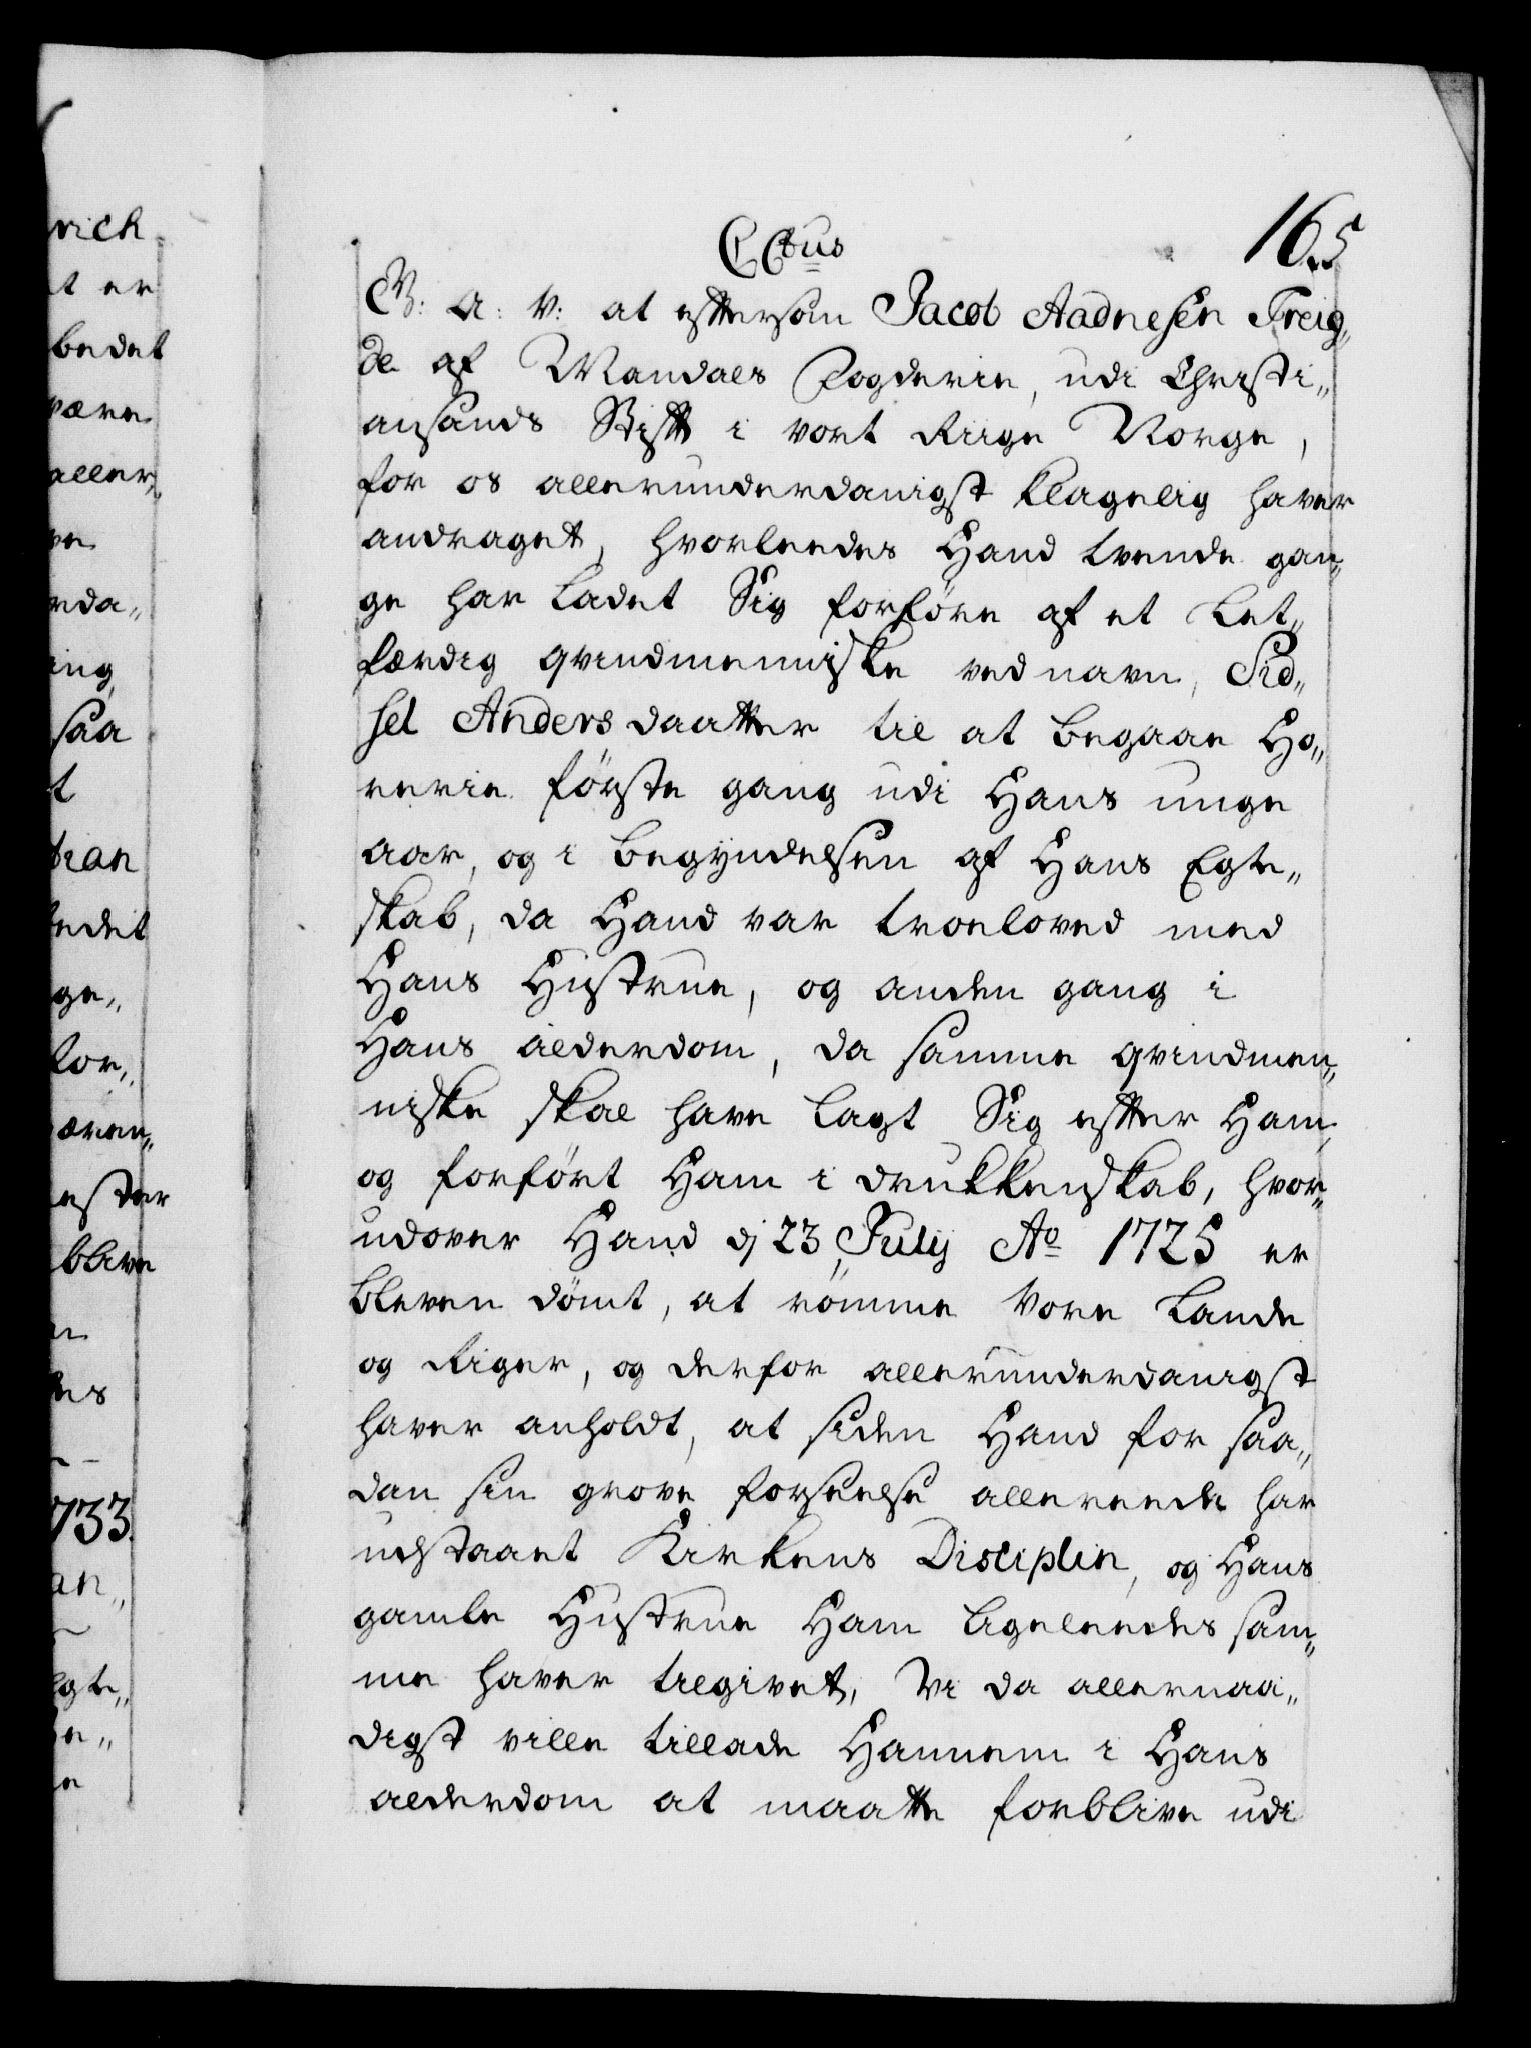 165
C 6tus
G: A: V: at effterson Jacob Aadnesen Treig„
de af Mandals Fogderie, udi Christi„
ansands Stifft i vort Riige Norge,
for os allerunderdanigst klagelig haver
andraget, hvorleedes Hand tvende gan„
ge har ladet Sig forføre af et Let„
færdig qvindmenniske ved navn, Sid„
sel Andersdaatter til at begaae Ho„
rerie første gang udi Hans unge
aar, og i begyndelsen af Hans Egte„
skab, da Hand var troeloved med
Hans Hustrue, og anden gang i
Hans alderdom, da samme qvindmen„
niske skal have lagt Sig efter Ham,
og forført Ham i drukkenskab, hvor„
udover Hand dj 23 Julij Ao 1725 er
bleven dømt, at rømme vore Lande
og Riger, og derfor allerunderdanigst
haver anholdt, at siden Hand for saa„
dan sin grove forseelse allereede har
udstaaet Kirkens Disciplin, og Hans
gamle Hustrue Ham ligeleedes sam„
me haver tilgivet, Vi da allernaa„
digst ville tillade Hannem i Hans
alderdom at maatte forblive udi
rich
t er
bedet
være
aller„
ve
rda„
ing„
saa
t
tian
edet
ge„
for„
æren„
ester
blive
es
733.
an„
gte„
e„
e